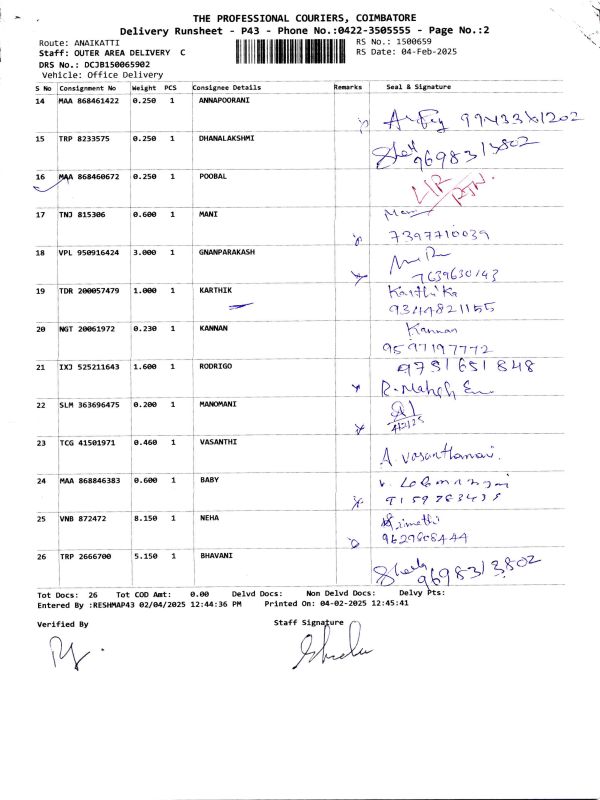 THE PROFESSIONAL COURIERS, COIMBATORE
Delivery Runsheet - P43 - Phone No.:0422-3505555 - Page No.:2
Route: ANAIKATTI RS No.: 1500659
Staff: OUTER AREA DELIVERY C RS Date: 04-Feb-2025
DRS No.: DCJB150065902
Vehicle: Office Delivery
S No Consignment No Weight PCS Consignee Details Remarks Seal & Signature
14 MAA 868461422 0.250 1 ANNAPOORANI
15 TRP 8233575 0.250 1 DHANALAKSHMI
9698313802
16 MAA 868460672 0.250 1 POOBAL
17 TNJ 815306 0.600 1 MANI
Mani
7397710039
18 VPL 950916424 3.000 1 GNANPARAKASH
7639630143
19 TDR 200057479 1.000 1 KARTHIK
Karthika
9344821155
20 NGT 20061972 0.230 1 KANNAN
Kannan
9597197772
21 IXJ 525211643 1.600 1 RODRIGO
9751651848
22 SLM 363696475 0.200 1 MANOMANI
4/2/25
23 TCG 41501971 0.460 1 VASANTHI
A. Vasanthamani.
24 MAA 868846383 0.600 1 BABY
25 VNB 872472 8.150 1 NEHA
9629608444
26 TRP 2666700 5.150 1 BHAVANI
9698313802
Tot Docs: 26 Tot COD Amt: 0.00 Delvd Docs: Non Delvd Docs: Delvy Pts:
Entered By :RESHMAP43 02/04/2025 12:44:36 PM Printed On: 04-02-2025 12:45:41
Verified By Staff Signature